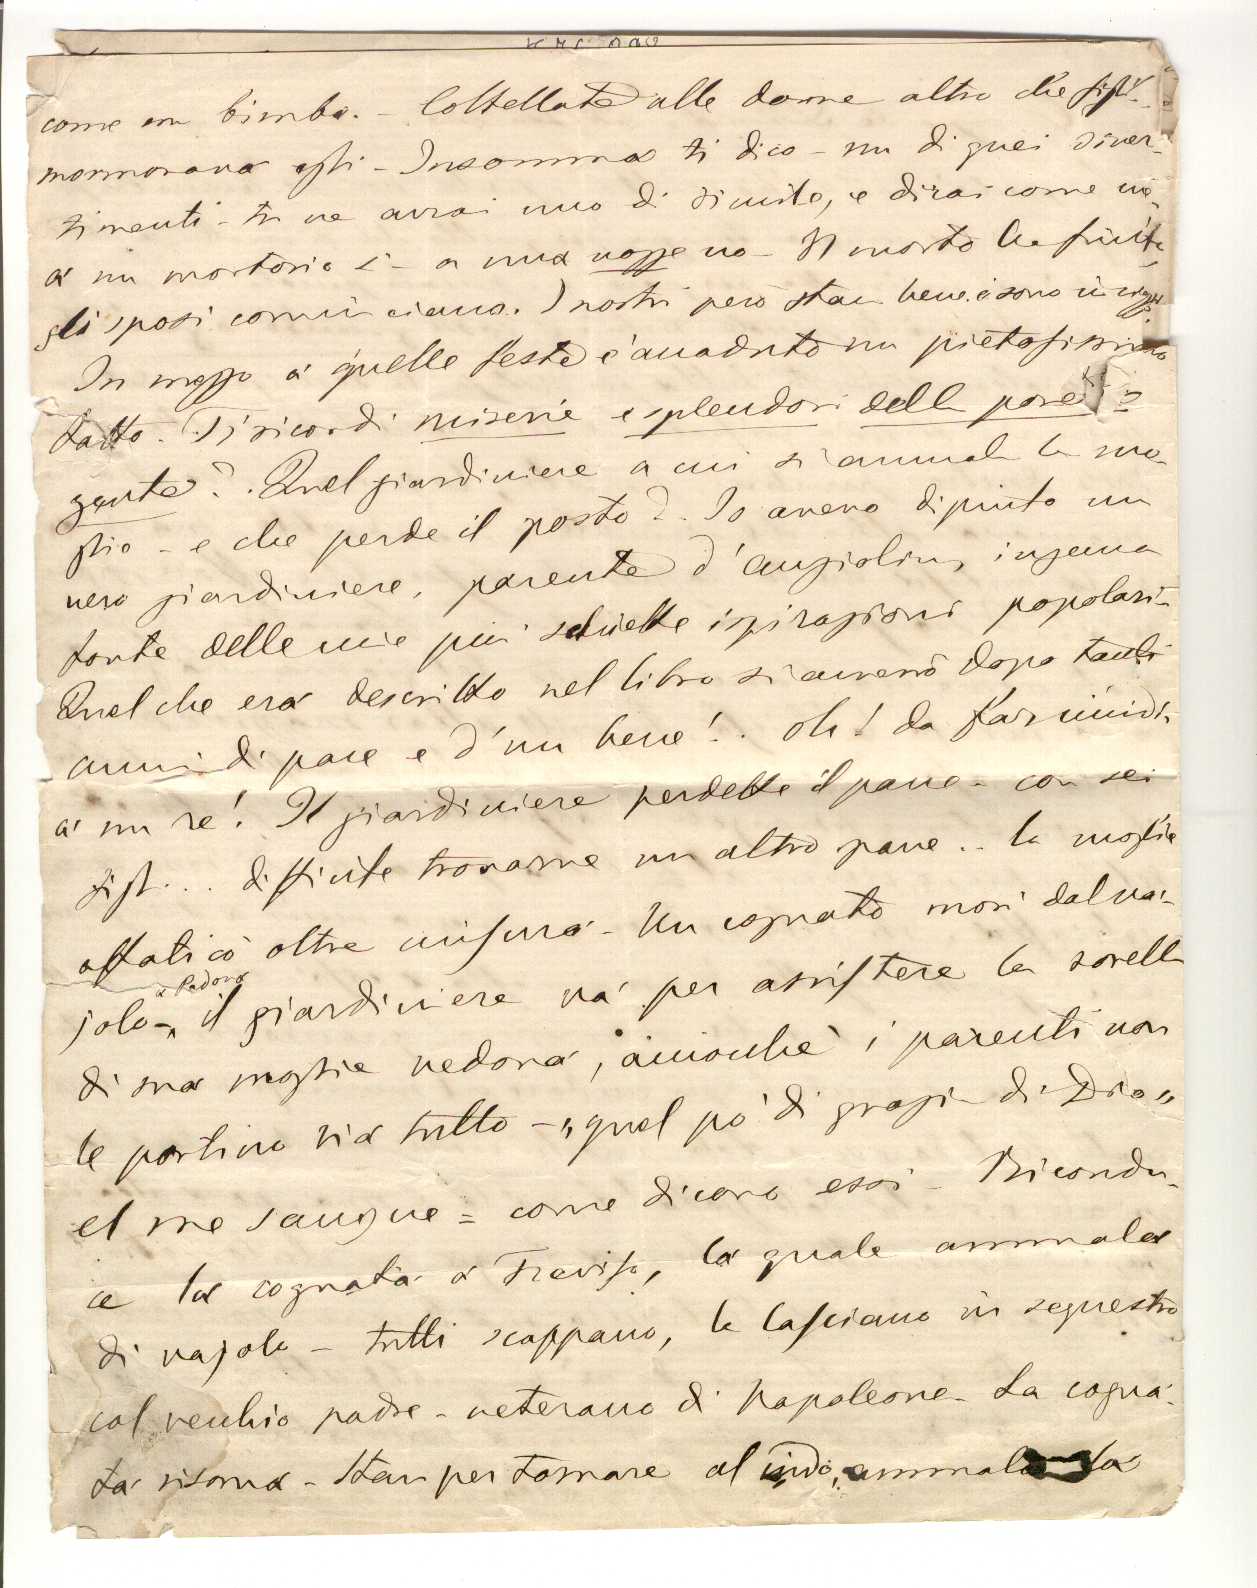 come un bimbo. - Coltellate alle donne altro che figli
mormorava egli - Insomma ti dico - un di quei diver-
timenti - tu ne avrai uno di simile, e dirai come me
a' un mortorio sì - a una nozze no - Il morto ha finito
gli sposi cominciano. I nostri però stan bene e sono in viaggio
In mezzo a' quelle feste è avvaduto un pietosissimo
fatto. Ti ricordi miserie e splendori della povera
gente? Quel giardiniere a cui si ammala la mo-
glie - e che perde il posto? Io avevo dipinto un
vero giardiniere, parente d'Angiolina, ingenua
fonte delle mie più schiette ispirazioni popolari -
Quel che era descritto nel libro si avverò dopo tanti
anni di pace e d'un bene! .. oh! da
a' un re! Il giardiniere perdette il pane - con sei
figli ... difficile trovarne un altro pane .. la moglie
affaticò oltre misura - Un cognato morì dal va-
a Padova
jolo - il giardiniere va' per assistere la sorella
di sua moglie vedova, acciocchè i parenti non
le portino via tutto - „quel po' di grazia di Dio„
el me sangue = come dicono essi - Ricondu-
ce la cognata a Treviso, la quale ammala
di vajolo - tutti scappano, la lasciano in sequestro
col vecchio padre - veterano di Napoleone - La cogna-
ta risana - Stan per tornare al nido, ammala la